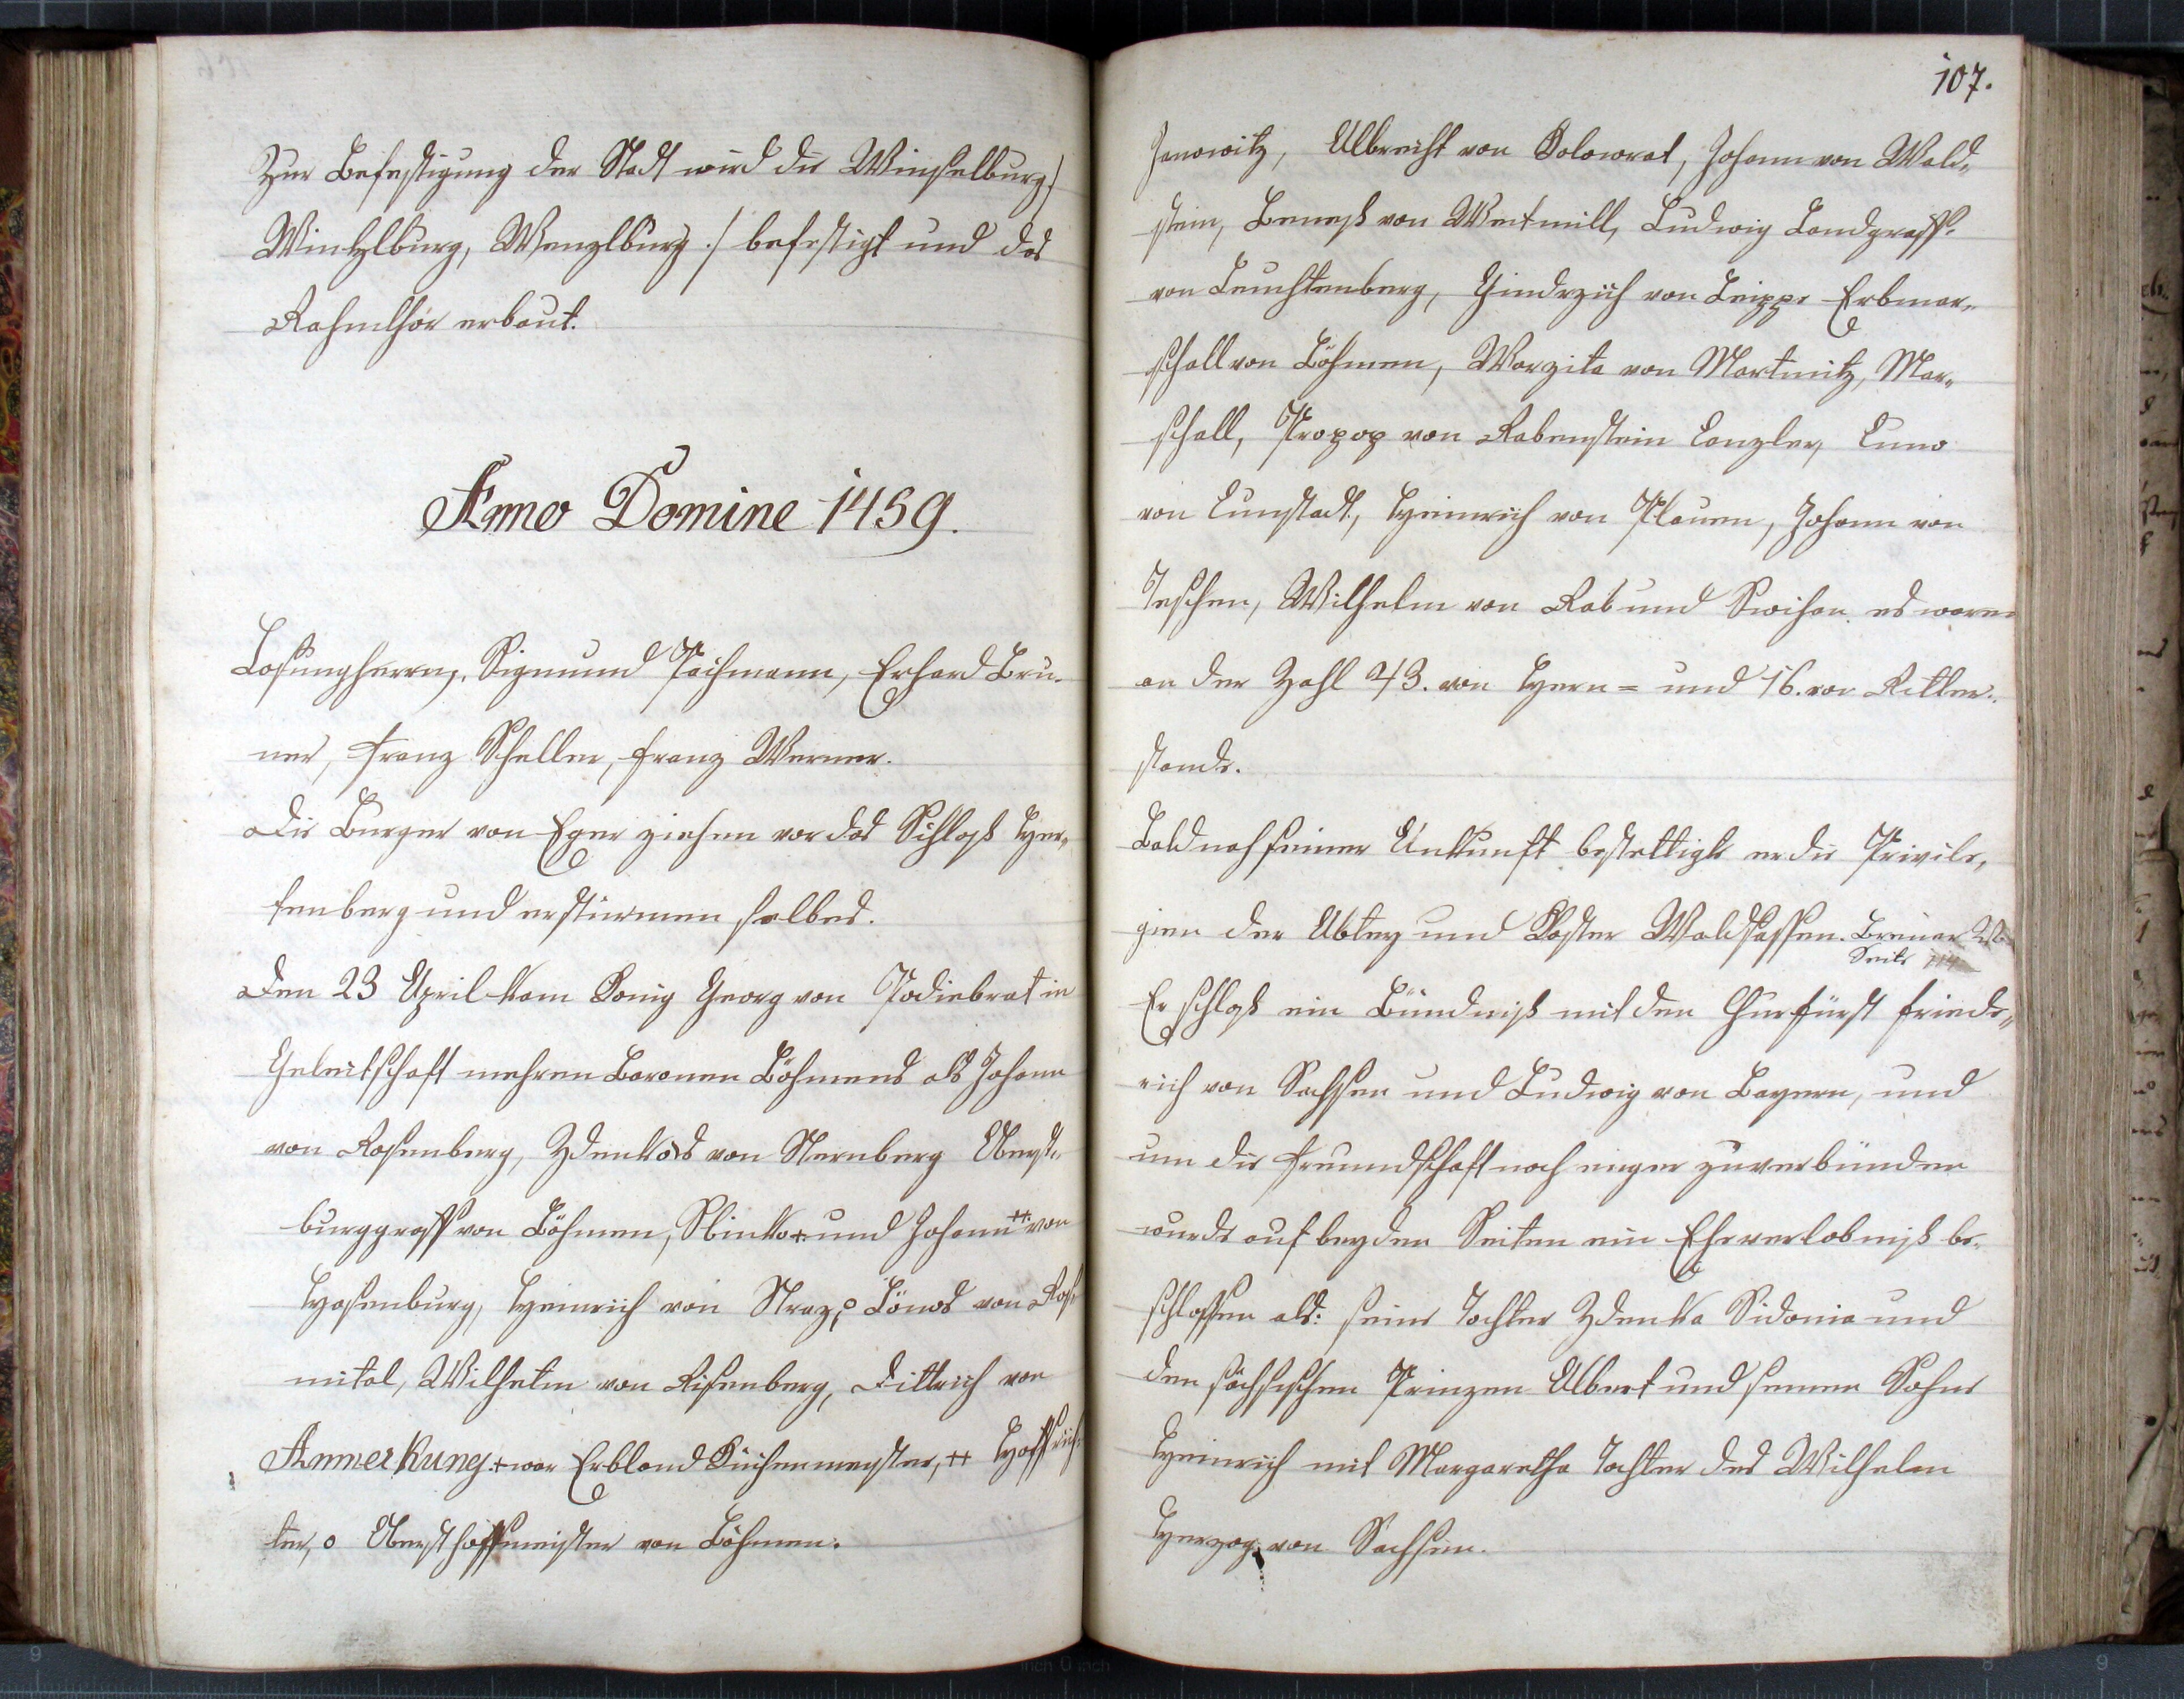 Zur Befestigung der Stadt wird die Winselburg /
Wintzlburg, Wenzlburg ./ befestigt und das
Rahmthor erbaut.
Anno Domine 1459.
Losungherrn, Sigmund Pachmann, Erhard Bru-
ner, Franz Scheller, Franz Werner.
Die Burger von Eger ziehen vor das Schloß Her-
tenberg und erstürmen selbes.
Den 23 April kam König Georg von Podiebrat in
Geleitschaft mehren Baronen Böhmens als Johann
von Rosenberg, Zdenkos von Sternberg Oberst-
burggraff von Böhmen, Sbinko + und Johann ++ von
Hasenburg, Heinrich von Straz, o Lönos von Ros-
mital, Wilhelm von Risenberg, Dittrich von
Anmerkung + war Erbland Küchenmeyster, ++ Hoffrich-
ter, o Obersthoffmeister von Böhmen.
107.
Janowitz, Albrecht von Kolowrat, Johann von Wald-
stein, Benesch von Weitmill, Ludwig Landgraff
von Leuchtenberg, Gindrzich von Leippe Erbmar-
schall von Böhmen, Worzita von Martinitz, Mar-
schall, Propop von Rabenstein Canzler, Cuno
von Cunstadt, Heinrich von Plauen, Johann von
Teschen, Wilhelm von Rab und Swihon. es waren
an der Zahl 43. von Herrn= und 16. von Ritter-
stande.
Bald nach seiner Ankunft bestettigte er die Privile-
gien der Abtey und Kloster Waldsassen. Breiner
Seite
Er schloß ein Bündniß mit den Churfürst Friede-
rich von Sachsen und Ludwig von Bayern, und
um die Freundschaft noch enger zuverbünden
wurde auf beyden Seiten ein Eheverlobniß be-
schlossen als: seine Tochter Zdenka Sidonia und
den sächsischen Prinzen Albert und seinen Sohne
Heinrich mit Margaretha Tochter des Wilhelm
Herzog von Sachsen.